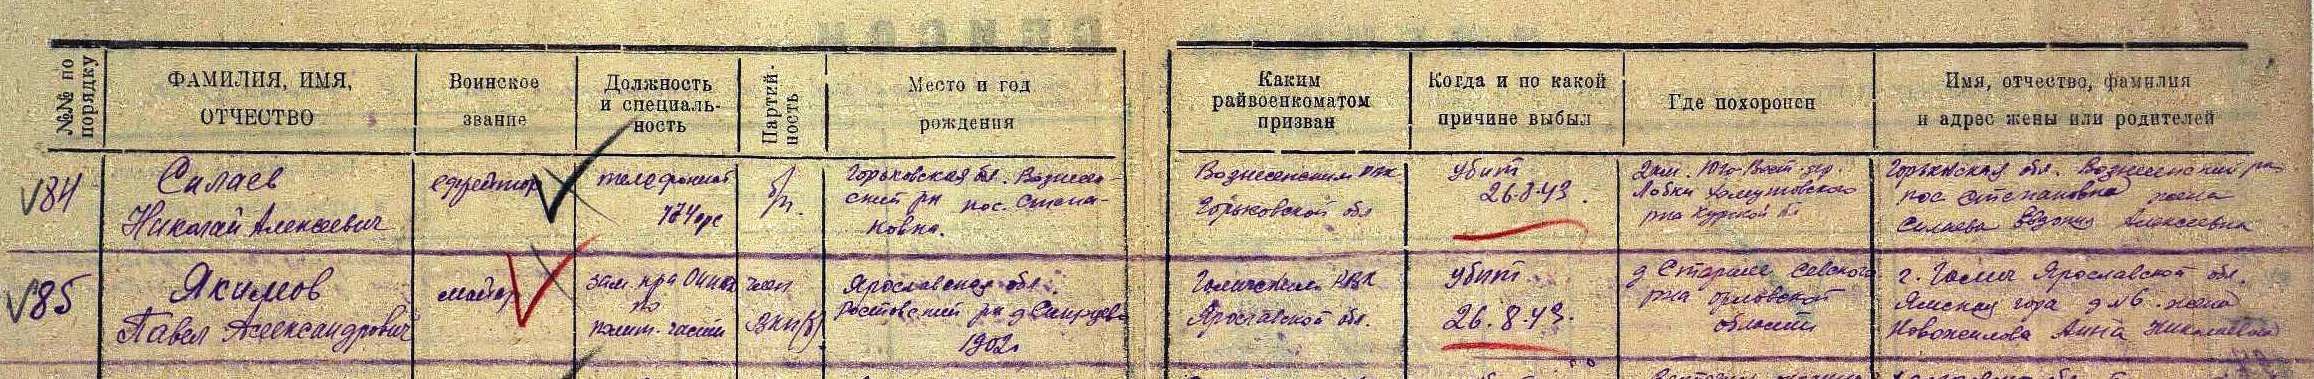 №№ по порядку
ФАМИЛИЯ, ИМЯ, ОТЧЕСТВО
Воинское звание
Должность и специаль-
ность
Партий-
ность
Место и год рождения
Каким райвоенкоматом призван
Когда и по какой причине выбыл
Где похоронен
Имя, отчество, фамилия и адрес жены или родителей
84
Силаев
Николай Алексеевич
ефрейтор
телефонист
б/п.
Горьковская обл. Вознесен-
ский рн пос. Степа-
новка.
Вознесенским рвк
Горьковской обл
убит
26.8.43.
2км. Юго-Вост. дер.
Лобки Хомутовского
рна Курской обл
Горьковская обл. Вознесенский рн
пос Степановка жена
Силаева Евдокия Алексеевна
85
Якимов
Павел Александрович
майор
зам. к-ра
по
полит. части
член
ВКП(б)
Ярославская обл.
Ростовский рн д
1902г
РВК
Ярославской обл.
убит
26.8.43.
д Севского
рна Орловской
области
г. Галич Ярославской обл.
Ямская д №6 жена
Новожилова Анна Николаевна